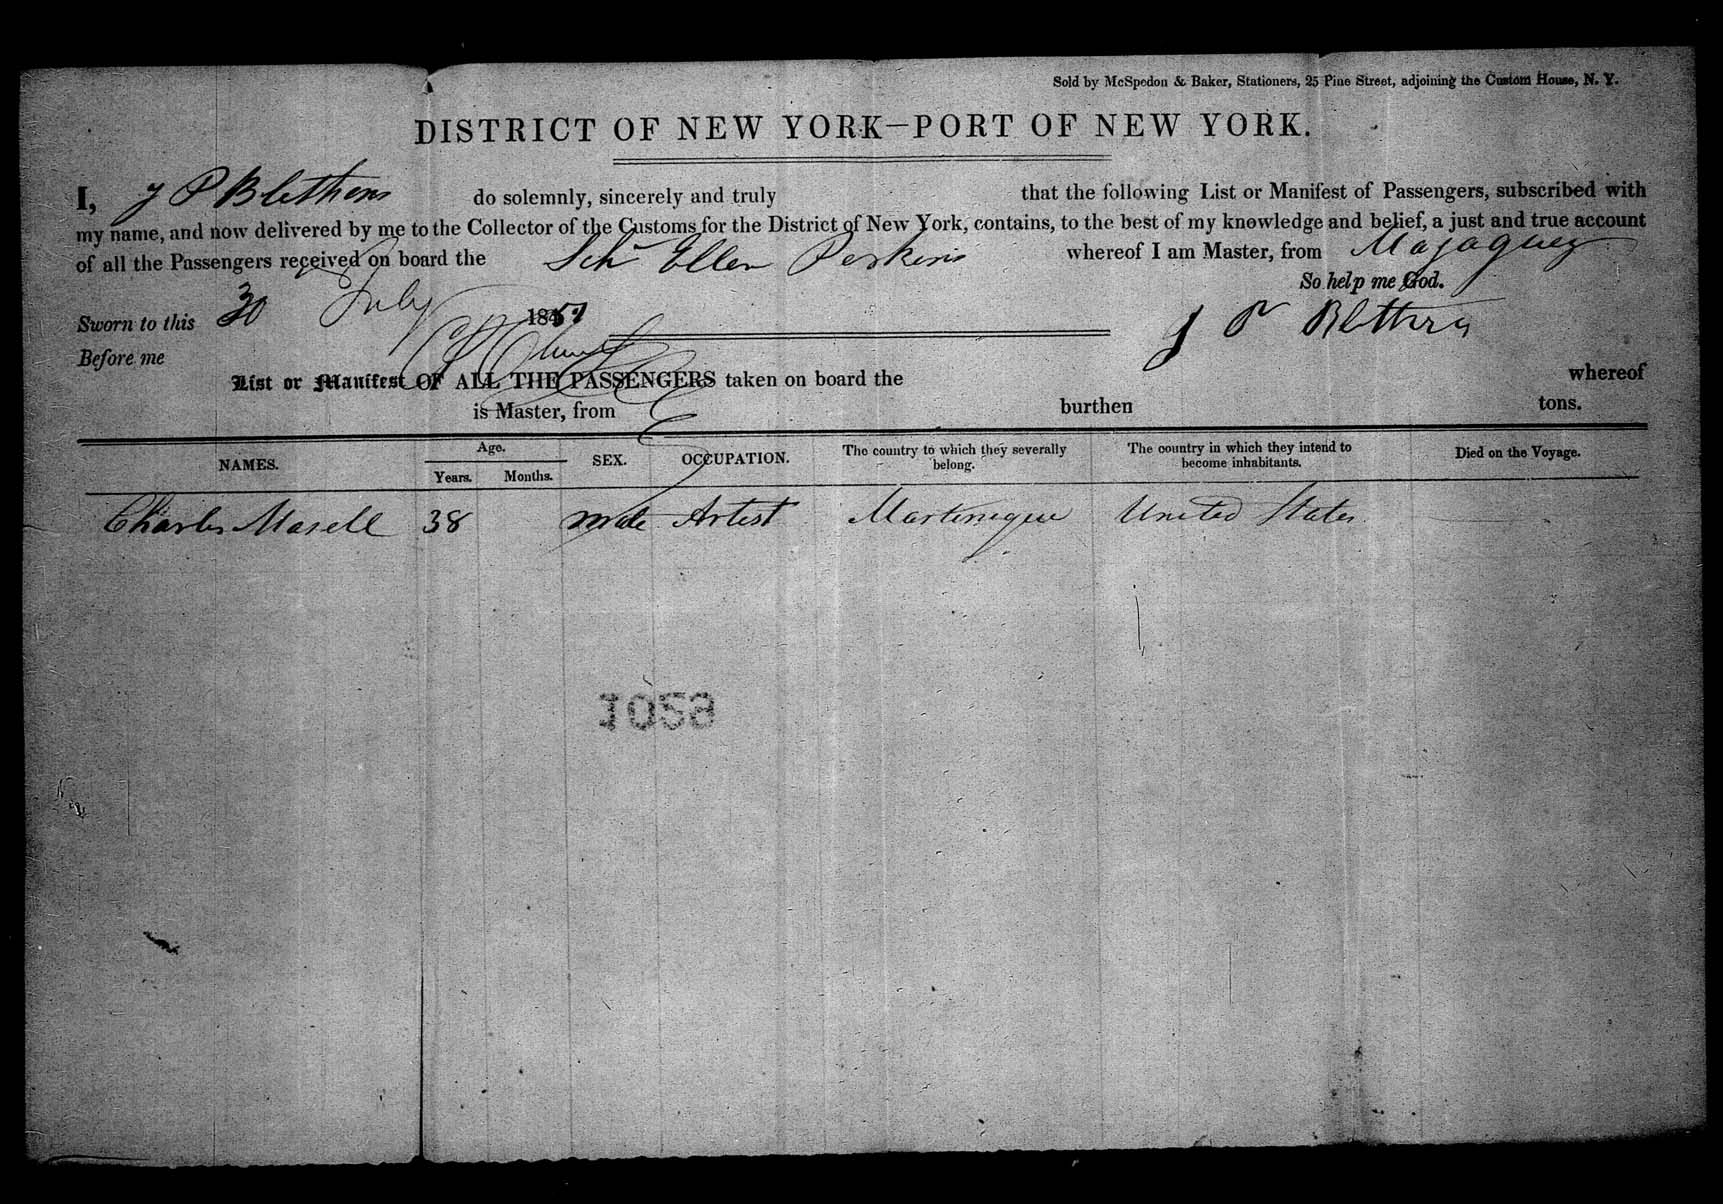 Sold by McSpedon & Baker, Stationers, 25 Pine Street, adjoining the Custom House, N. Y.
DISTRICT OF NEW YORK—PORT OF NEW YORK.
I, J P Blethens do solemnly, sincerely and truly that the following List or Manifest of Passengers, subscribed with
my name, and now delivered by me to the Collector of the Customs for the District of New York, contains, to the best of my knowledge and belief, a just and true account
of all the Passengers received on board the Schr Ellen Perkins whereof I am Master, from Mayaguez
So help me God.
Sworn to this 30 July 1851 J P Blethens
Before me
List or Manifest OF ALL THE PASSENGERS taken on board the whereof
is Master, from burthen tons.
NAMES. Age. Years. Months. SEX. OCCUPATION. The country to which they severally belong. The country in which they intend to become inhabitants. Died on the Voyage.
Charles Masell 38 male Artist Martinique United States